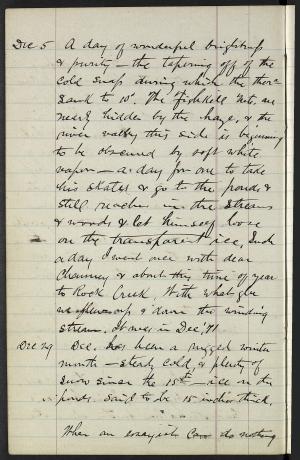 Dec 5 A day of wonderful brightness
& purity — the tapering off of the
cold snap during which the ther-
sank to 10°. The Fishkill Mts. are
nearly hidden by the haze, & the
river valley this side is beginning
to be obscured by soft white
vapor — a day for one to take
his skates & go to the ponds &
still reaches in the streams
& woods & let himself loose
on the transparent ice, Such
a day I went once with dear
Chauncey & about this time of year
to Rock Creek, With what glee
we up & down the winding
stream. It was in Dec '71.
Dec 29 Dec. has been a rugged winter
month — steady cold, & plenty of
snow since the 15th — ice on the
ponds said to be 15 inches thick.
When an essayist can do nothing